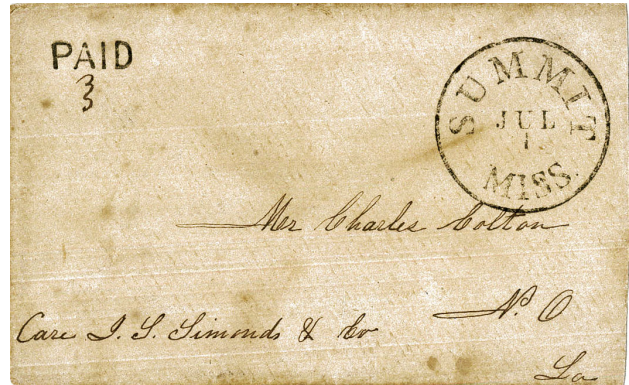 PAID
3
SUMMIT
JUL
1
MISS.
Mr Charles Colton
Care J. S. Simonds & Co
N. O
La